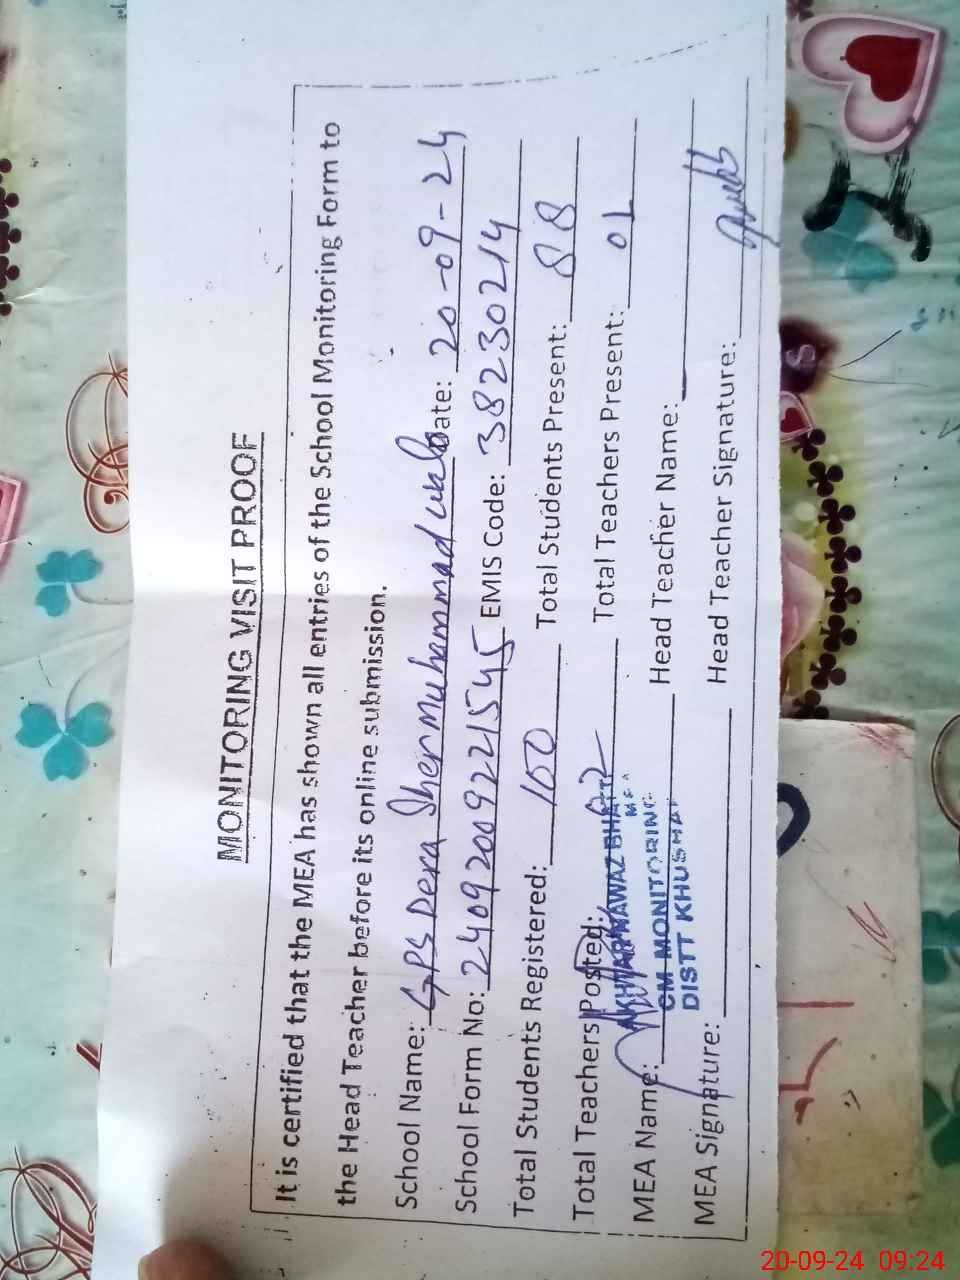 MONITORING VISIT PROOF
It is certified that the MEA has shown all entries of the School Monitoring Form to
the Head Teacher before its online submission.
School Name: GPS Dera Sher Muhammad wala Date: 20-09-24
School Form No: 24092009221545 EMIS Code: 38230214
Total Students Registered: 100 Total Students Present: 88
Total Teachers Posted: 02 Total Teachers Present: 01
MEA Name: AKHTAR NAWAZ BHATTI Head Teacher Name:
MEA
CM MONITORING
DISTT KHUSHAB
MEA Signature: Head Teacher Signature:
20-09-24 09:24